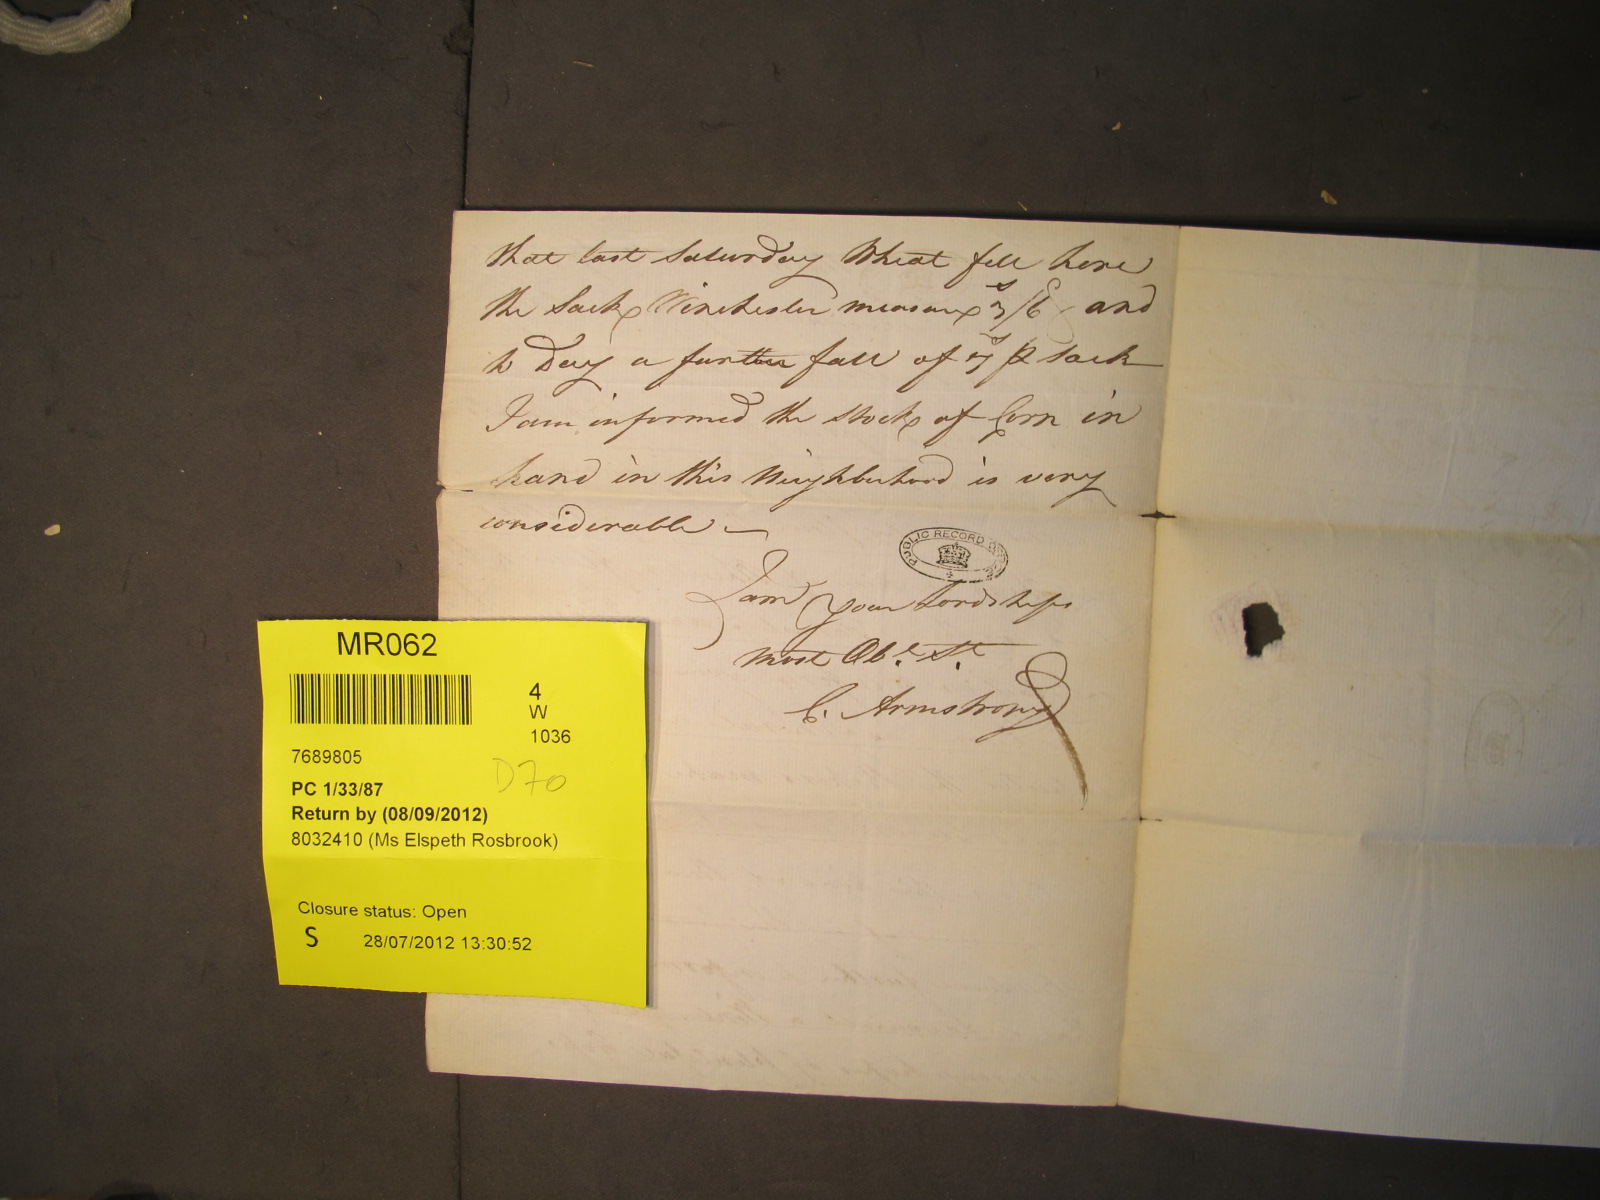 that last Saturday Wheat fell here
the Sack Winchester measure 3/6 and
to Day a further fall of 7s ⅌ sack
I am informed the stock of Corn in
hand in this Neighbuhood is very
considerable —
PUBLIC RECORD OFFICE
I am Your Lordships
most Obe. St.
C. Armstrong
MR062
4
W
1036
7689805
D70
PC 1/33/87
Return by (08/09/2012)
8032410 (Ms Elspeth Rosbrook)
Closure status: Open
S 28/07/2012 13:30:52